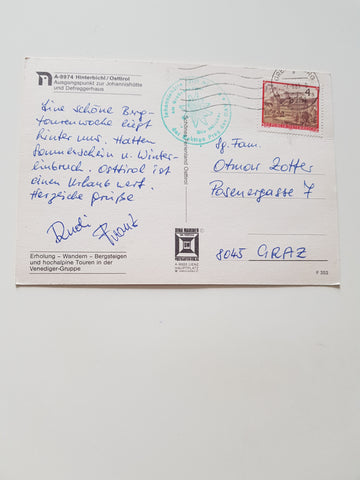 A-9974 Hinterbichl/Osttirol
Ausgangspunkt zur Johannishütte
und Defreggerhaus
Eine schöne Berg-
tourenwoche liegt
hinter uns. Hatten
Sonnenschein u. Winter-
einbruch. Osttirol ist
einen Urlaub wert.
Herzliche Grüße
Rudi Franz
Erholung – Wandern – Bergsteigen
und hochalpine Touren in der
Venediger-Gruppe
A-9900 LIENZ
HAUPTPLATZ
4 S
Sg. Fam.
Otmar Zotter
Posenergasse 7
8045 GRAZ
F 353